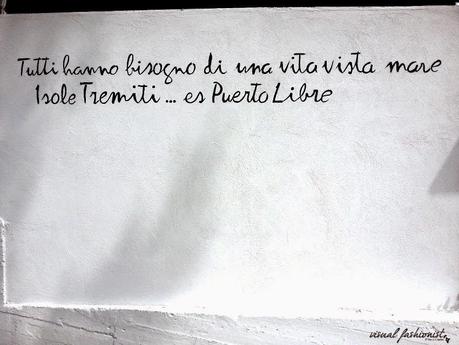 Tutti hanno bisogno di una vita vista mare
Isole Tremiti ... es Puerto Libre
visual fashionist